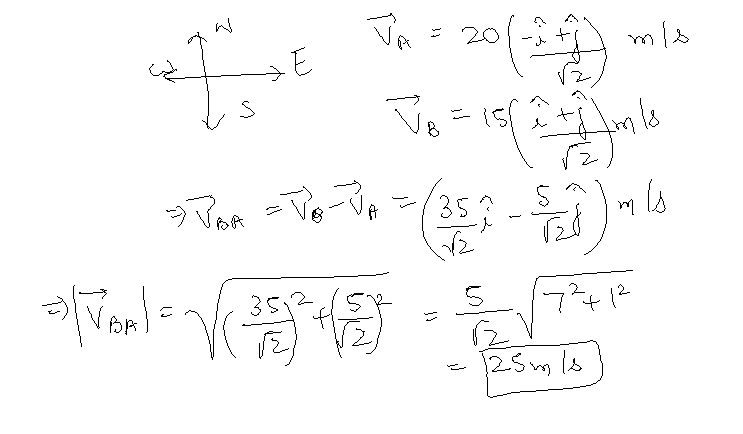 N
W E
S
V⃗_A = 20 ((-î + ĵ)/√2) m/s
V⃗_B = 15 ((î + ĵ)/√2) m/s
⇒ V⃗_BA = V⃗_B - V⃗_A = (35/√2 î - 5/√2 ĵ) m/s
⇒ |V⃗_BA| = √((35/√2)² + (5/√2)²) = 5/√2 √(7² + 1²)
= 25 m/s